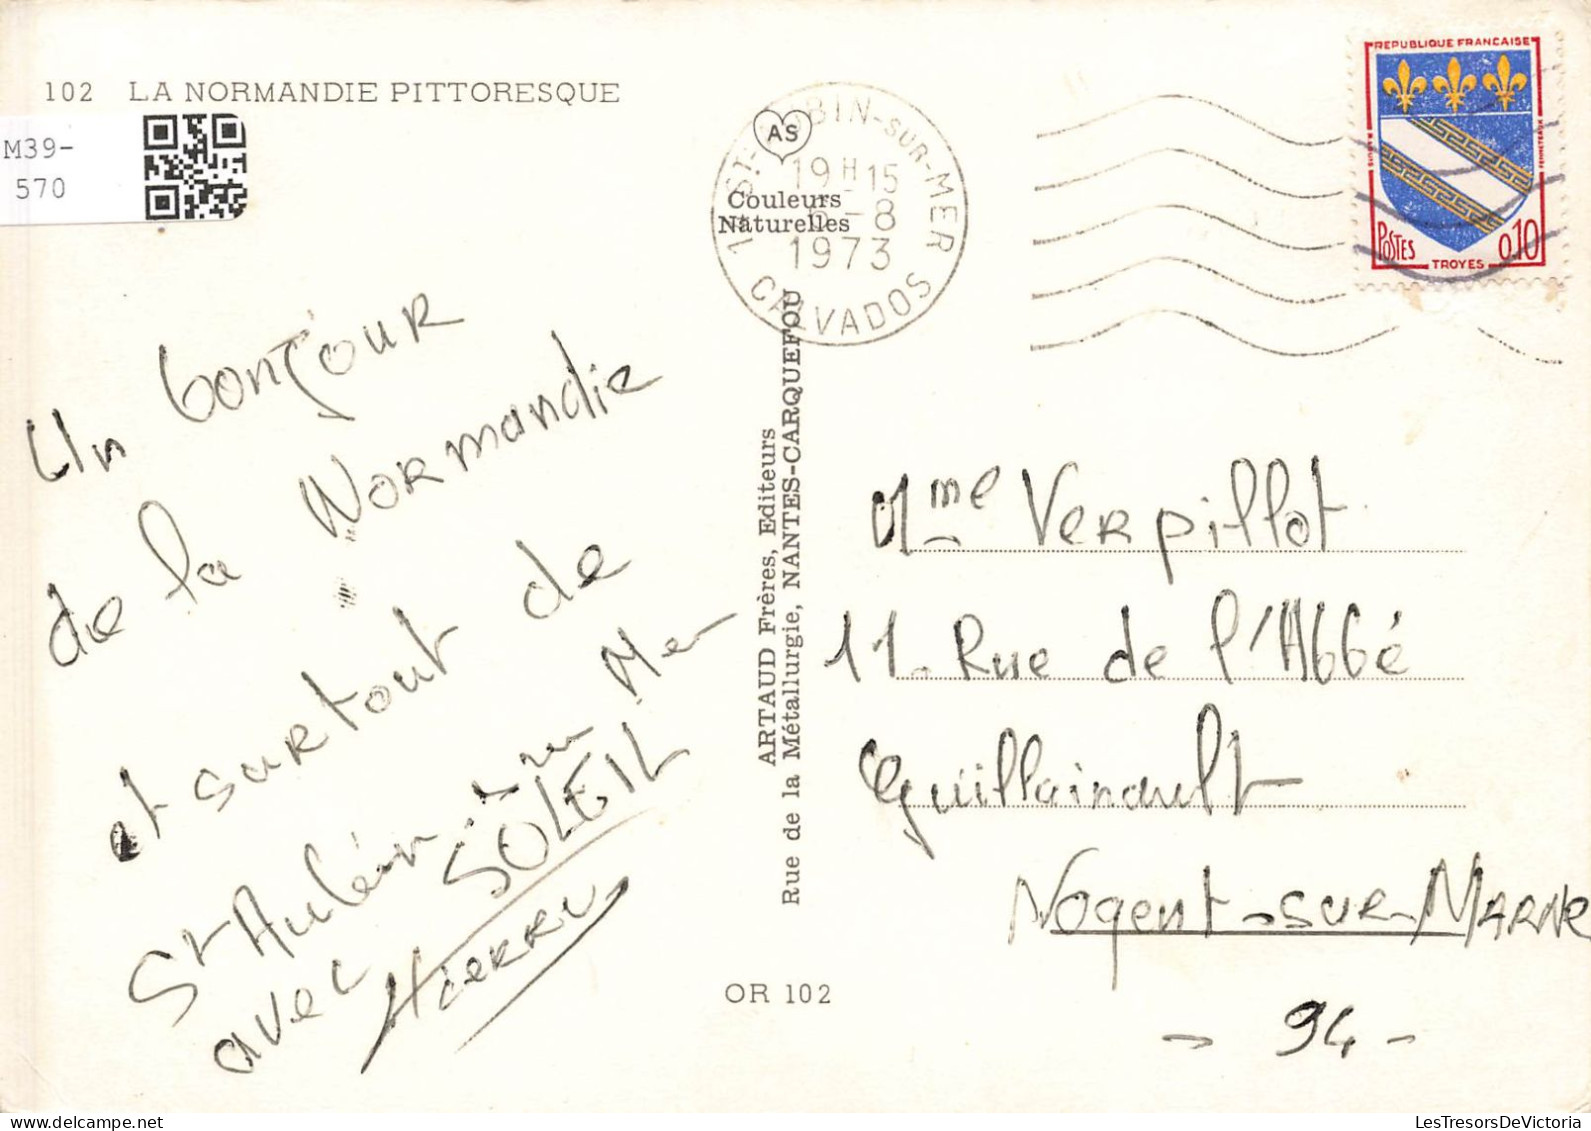 102 LA NORMANDIE PITTORESQUE
M39-
570
AS
Couleurs
Naturelles
ST-AUBIN-SUR-MER
19H15
6-8
1973
CALVADOS
REPUBLIQUE FRANCAISE
POSTES
TROYES
0,10
Un bonjour
de la Normandie
et surtout de
St Aubin Mer
avec SOLEIL
Pierre
ARTAUD Frères, Editeurs
Rue de la Métallurgie, NANTES-CARQUEFOU
Mme Verpillot
11 Rue de l'Abbé
Guillainault
Nogent-sur-Marne
- 94 -
OR 102
LesTresorsDeVictoria